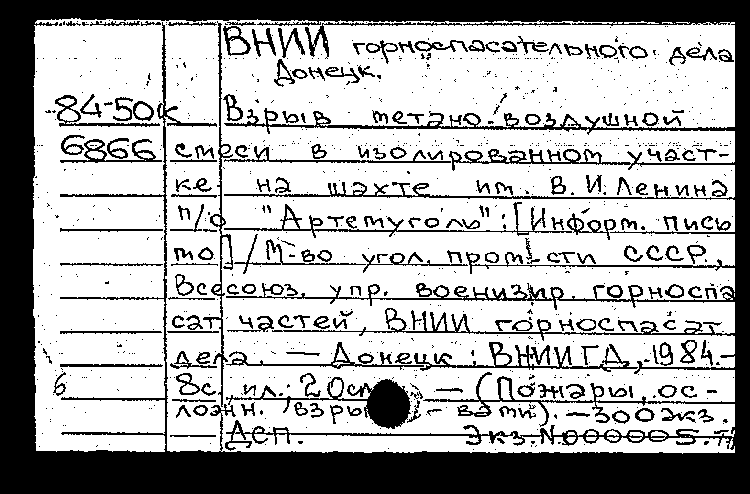 ВНИИ горноспасательного дела
Донецк.
84-50к Взрыв метано-воздушной
6866 смеси в изолированном участ-
ке на шахте им. В.И.Ленина
п/о "Артемуголь":[Информ. пись
мо]/М-во угол. пром-сти СССР.,
Всесоюз. упр. военизир. горноспа
сат частей, ВНИИ горноспасат
дела. — Донецк: ВНИИГД, 1984.-
6 8с., ил.; 20см — (Пожары, ос-
ложн. взры - ва ти). —300экз.
Дсп. Экз.N000005.